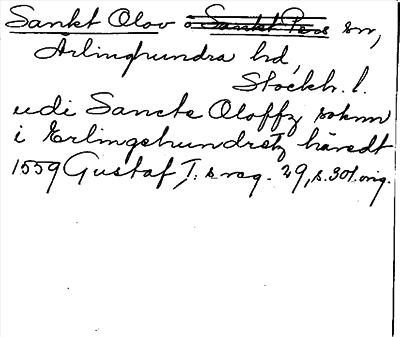 Sankt Olov o Sankt Pers sn,
Ärlinghundra hd,
Stockh. l.
udi Sancte Oloffz soknn
i Erlingehundretz häredt
1559 Gustaf I:s reg. 29, s. 301. orig.